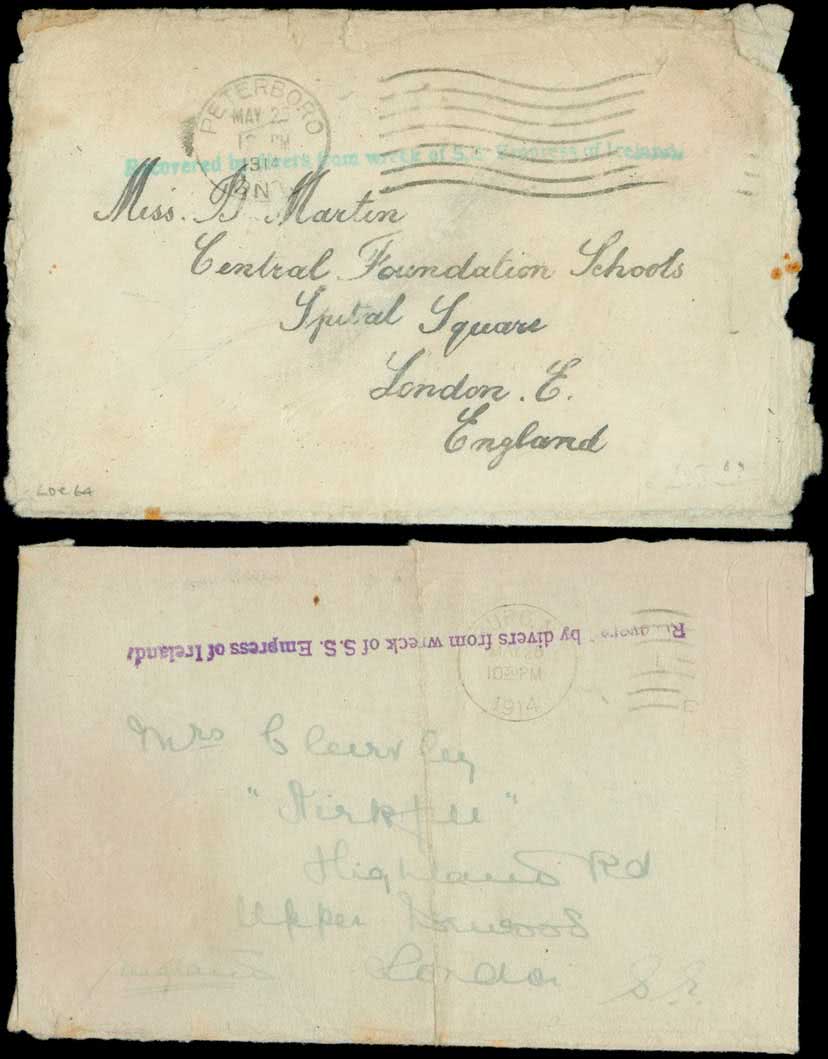 PETERBORO
MAY
PM
Recovered by divers from wreck of S.S. Empress of Ireland.
Miss. B Martin
Central Foundation Schools
Spital Square
London. E.
England
Recovered by divers from wreck of S.S. Empress of Ireland.
1030 PM
1914
Mrs
Highland Rd
Upper Norwood
London S.E.
England